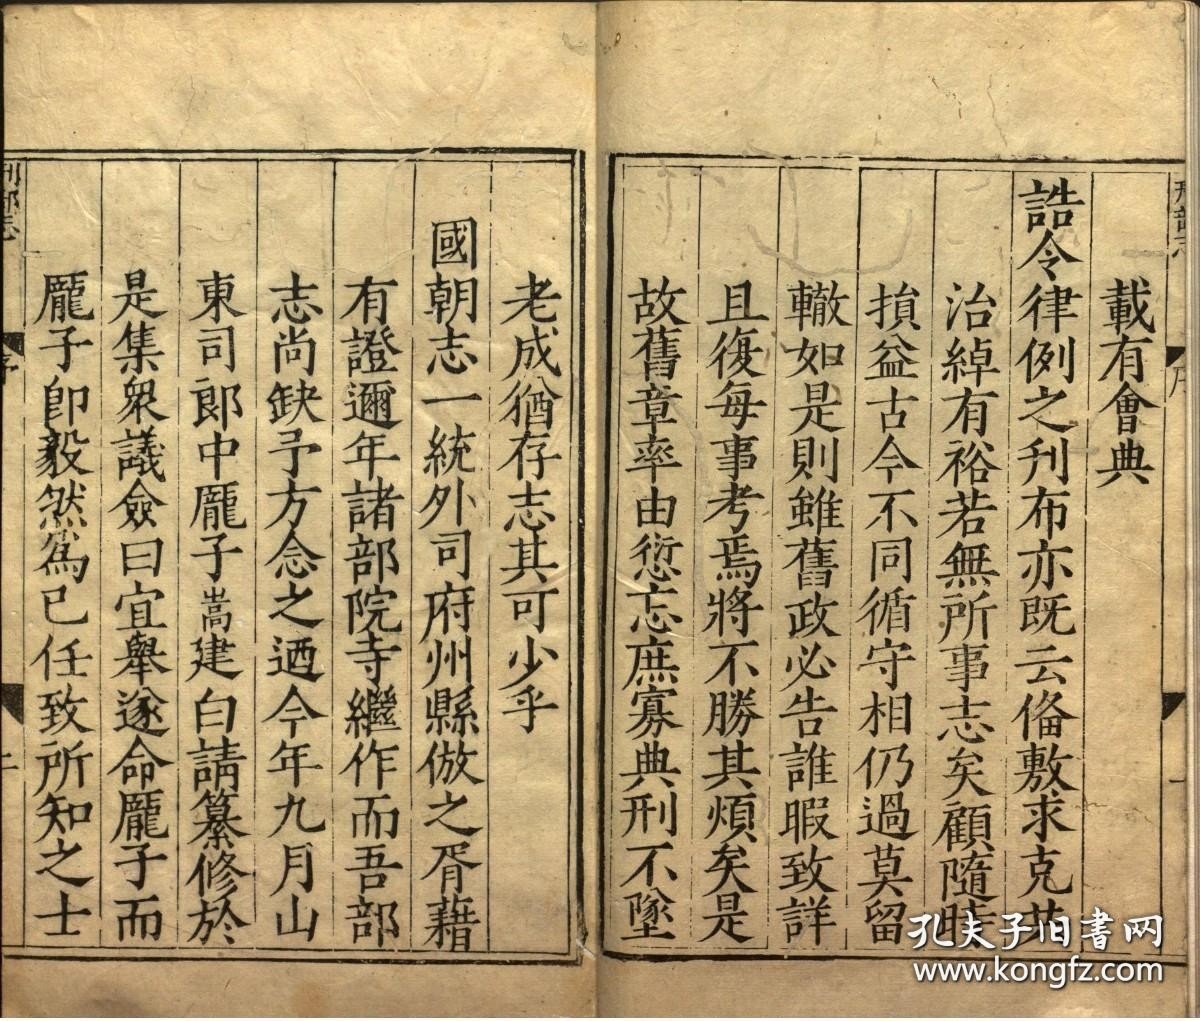 刑部志
序
一
載有會典
誥令律例之刊布亦既云俻敷求克共
治綽有裕若無所事志矣顧隨時
損益古今不同循守相仍過莫留
轍如是則雖舊政必告誰暇致詳
且復每事考焉將不勝其煩矣是
故舊章率由愆忘庶寡典刑不墜
老成猶存志其可少乎
國朝志一統外司府州縣倣之胥藉
有證邇年諸部院寺繼作而吾部
志尚缺予方念之迺今年九月山
東司郎中龐子嵩建白請纂修於
是集衆議僉曰宜舉遂命龐子而
龐子卽毅然爲已任致所知之士
刑部志
序
孔夫子旧书网
www.kongfz.com